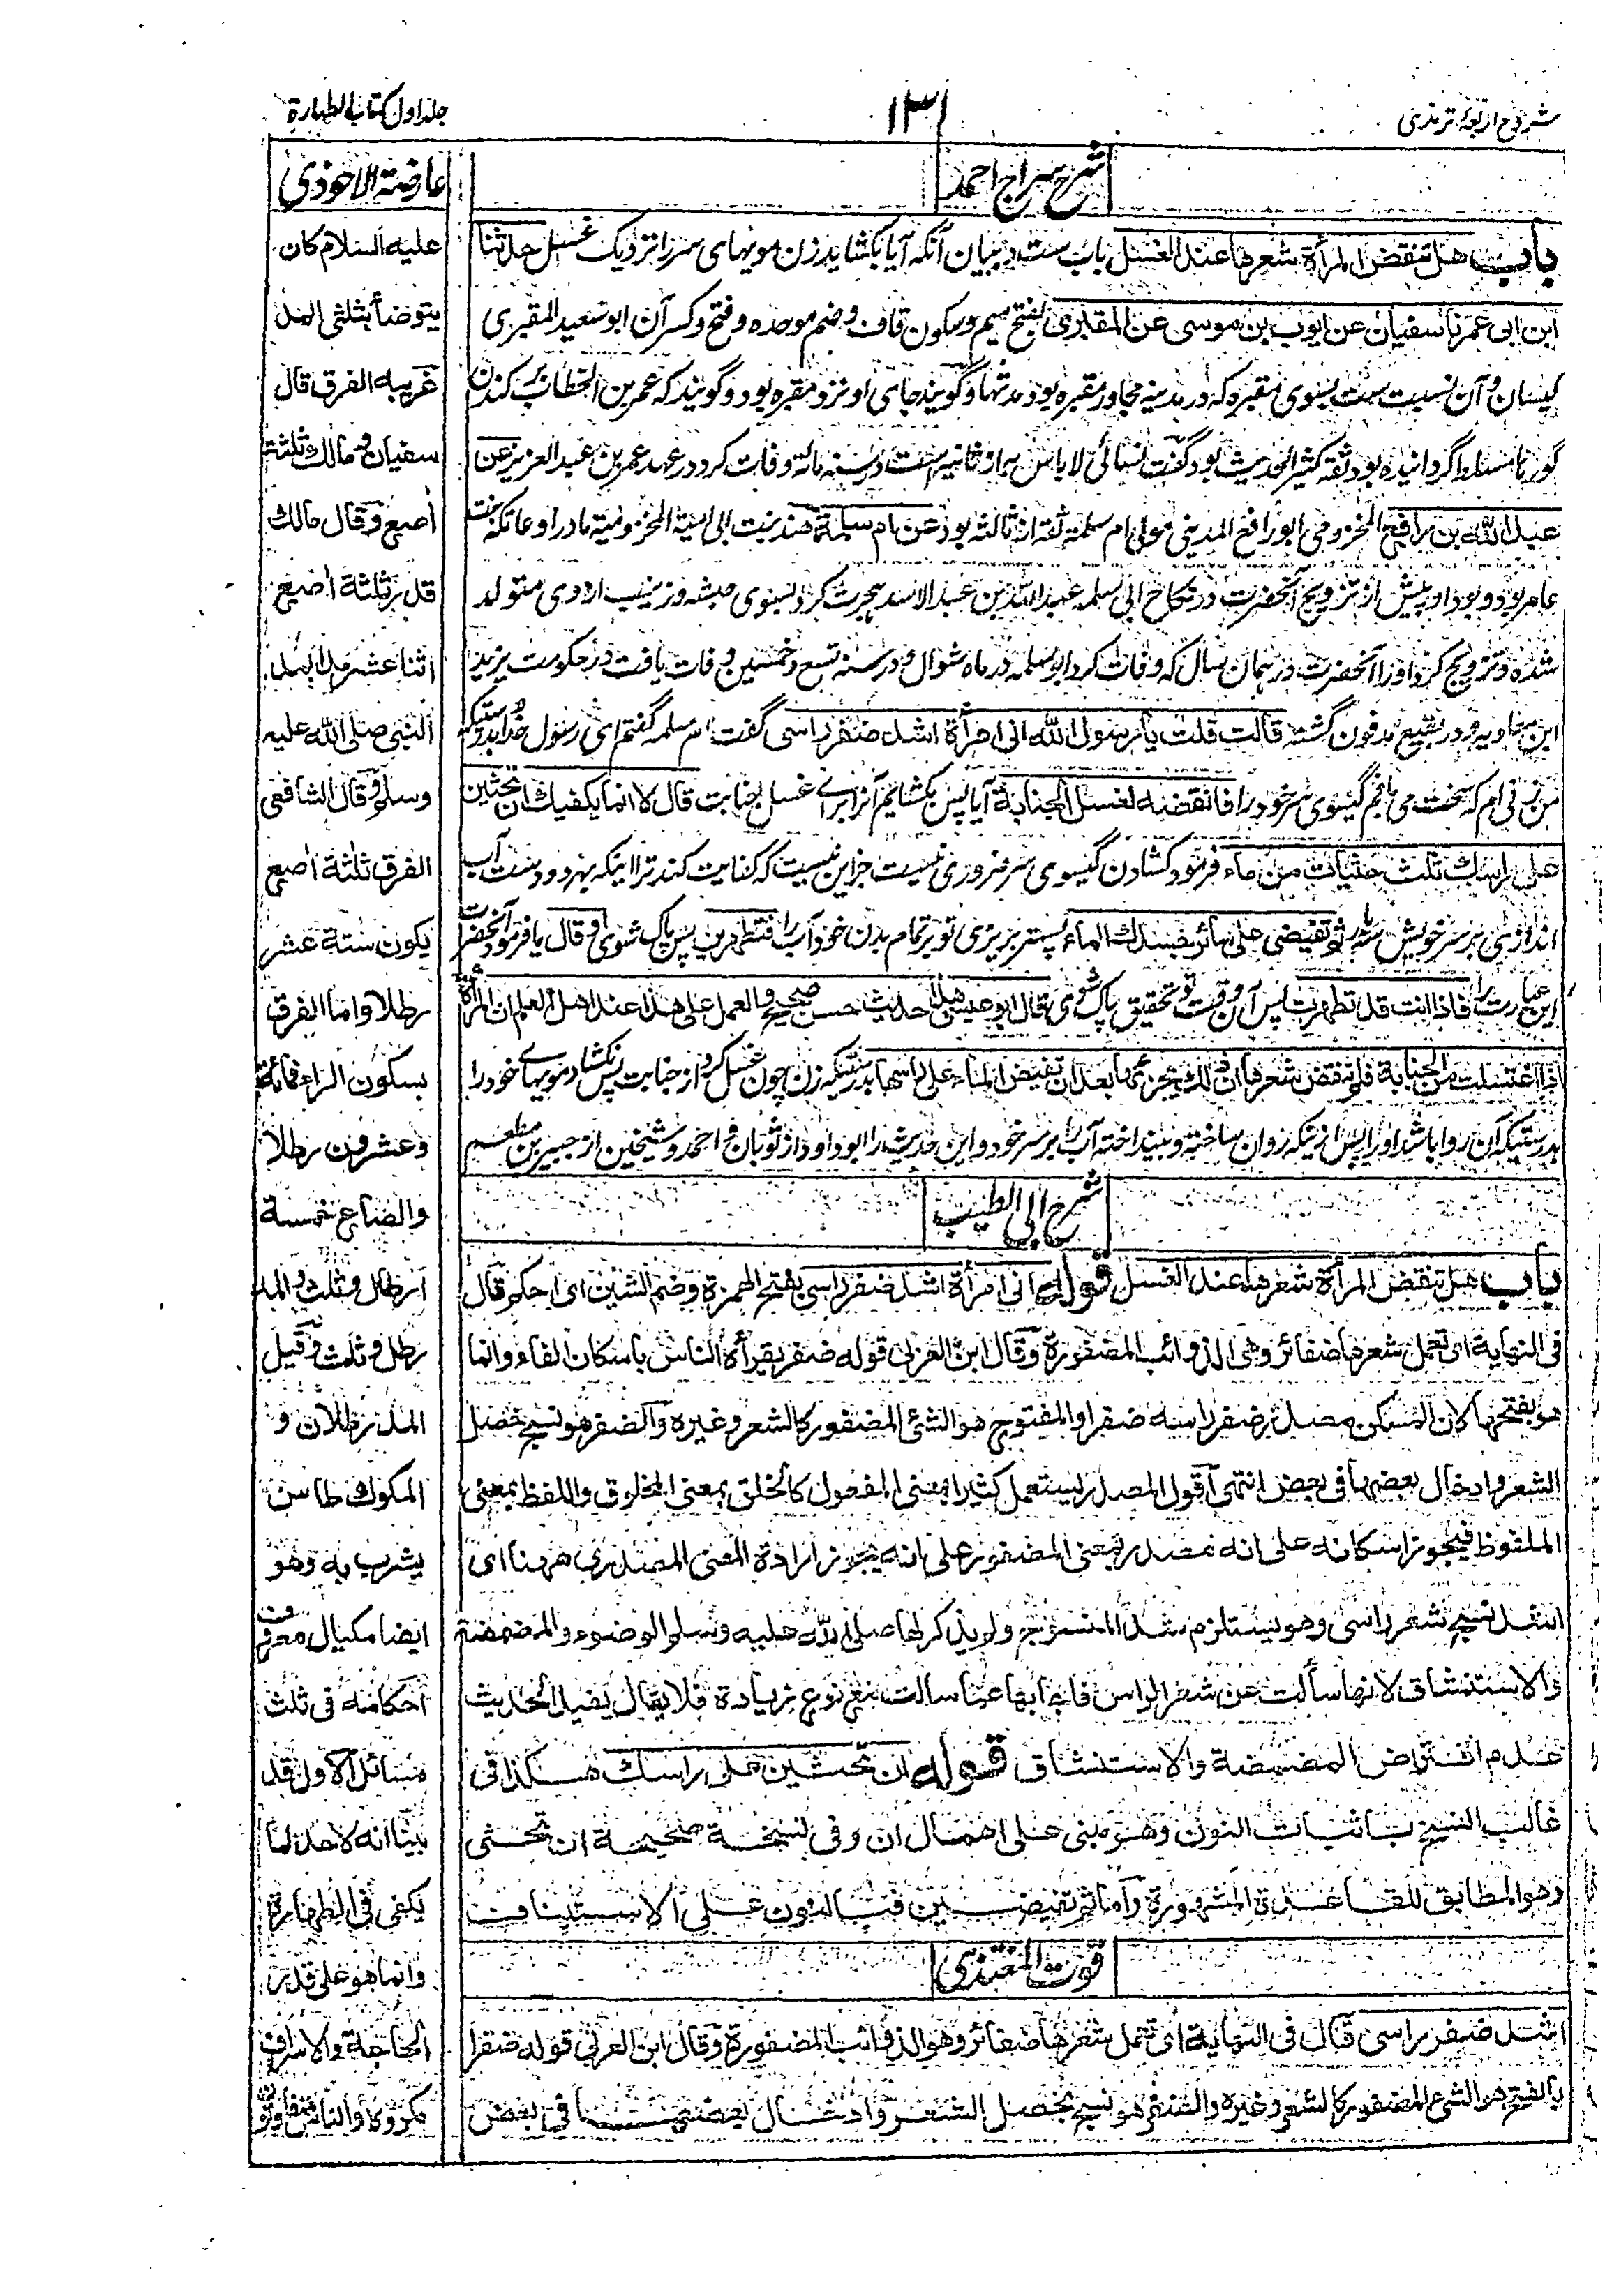 شروح اربعهٔ ترمذی
۱۳۱
جلد اول کتاب الطهارة
شرح سراج احمد
باب هل تنقض المرأة شعرها عند الغسل باب ست در بیان آنکه آیا بکشاید زن مویهای سر را نزدیک غسل حدثنا
ابن ابی عمر نا سفیان عن ایوب بن موسی عن المقبری بفتح میم وسکون قاف وضم موحده وفتح وکسر آن ابو سعید المقبری
کیسان و آن نسبت ست بسوی مقبره که در مدینه مجاور مقبره بود مدتها و گویند جای او نزد مقبره بود و گویند که عمر بن الخطاب بر کندن
گورها مسلط گردانیده بود ثقه کثیر الحدیث بود گفت نسائی لا باس به از ثانیه ست در سنه مائة وفات کرد در عهد عمر بن عبد العزیز عن
عبد الله بن رافع المخزومی ابو رافع المدینی مولی ام سلمة ثقه از ثالثه بود عن ام سلمة هند بنت ابی امیة المخزومیة مادر او عاتکه بنت
عامر بود و بود او پیش از تزویج آنحضرت در نکاح ابی سلمه عبد الله بن عبد الاسد هجرت کرد بسوی حبشه و زینب از وی متولد
شده و تزویج کرد او را آنحضرت در همان سال که وفات کرد ابو سلمه در ماه شوال و در سنه تسع وخمسین وفات یافت در حکومت یزید
ابن معاویه و در بقیع مدفون گشته قالت قلت یا رسول الله انی امرأة اشد ضفر راسی گفت ام سلمه گفتم ای رسول خدا بدرستیکه
من زنی ام که سخت می بافم گیسوی سر خود را فانقضه لغسل الجنابة آیا پس بکشایم آنرا برای غسل جنابت قال لا انما یکفیك ان تحثین
علی راسك ثلث حثیات من ماء فرمود کشادن گیسوی سر ضروری نیست جز این نیست که کفایت کند ترا اینکه بهر دو دست آب
اندازی بر سر خویش سه بار ثم تفیضی علی سائر جسدك الماء پستر بریزی تو بر تمام بدن خود آب را فتطهرین پس پاک شوی او قال یا فرمود آنحضرت
این عبارت را فاذا انت قد تطهرت پس آن وقت تو بتحقیق پاک شوی قال ابو عیسی هذا حدیث حسن صحیح والعمل علی هذا عند اهل العلم ان المرأة
اذا اغتسلت من الجنابة فلم تنقض شعرها ان ذلك یجزئها بعد ان تفیض الماء علی راسها بدرستیکه زن چون غسل کرد از جنابت پس نکشاد مویهای خود را
بدرستیکه آن روا باشد او را پس از نیکه روان ساخته و بینداخته آب را بر سر خود و این حدیث را ابو داود از ثوبان و احمد و شیخین از جبیر بن مطعم
شرح ابی الطیب
باب هل تنقض المرأة شعرها عند الغسل قوله انی امرأة اشد ضفر راسی بفتح الهمزة وضم الشین ای احکم قال
فی النهایة ای تعمل شعرها ضفائر وهی الذوائب المضفورة وقال ابن العربی قوله ضفر یقرأه الناس باسکان الفاء وانما
هو بفتحها لان المسکن مصدر ضفر راسه ضفرا والمفتوح هو الشئ المضفور کالشعر وغیره والضفر هو نسج خصل
الشعر وادخال بعضها فی بعض انتهی اقول المصدر یستعمل کثیرا بمعنی المفعول کالخلق بمعنی المخلوق واللفظ بمعنی
الملفوظ فیجوز اسکانه علی انه مصدر بمعنی المضفور علی انه یجوز ارادة المعنی المصدری ههنا ای
اشد نسج شعر راسی وهو یستلزم شد المنسوج ولم یذکر لها صلی الله علیه وسلم الوضوء والمضمضة
والاستنشاق لانها سألت عن شعر الراس فاجابها عما سالت مع نوع زیادة فلا یقال یفید الحدیث
عدم افتراض المضمضة والاستنشاق قوله ان تحثین علی راسك هکذا فی
غالب النسخ باثبات النون وهو مبنی علی اهمال ان وفی نسخة صحیحة ان تحثی
وهو المطابق للقاعدة المشهورة واما ثم تفیضین فبالنون علی الاستیناف
قوت المغتذی
اشد ضفر راسی قال فی النهایة ای تعمل شعرها ضفائر وهو الذوائب المضفورة وقال ابن العربی قوله ضفرا
بالفتح هو الشئ المضفور کالشعر وغیره والضفر هو نسج خصل الشعر وادخال بعضها فی بعض
عارضة الاحوذی
علیه السلام کان
یتوضأ بثلثی المد
غریبه الفرق قال
سفیان ومالك ثلثة
اصع وقال مالك
قدر ثلثة اصع
اثنا عشر مدا بمد
النبی صلی الله علیه
وسلم وقال الشافعی
الفرق ثلثة اصع
یکون ستة عشر
رطلا واما الفرق
بسکون الراء فمائة
وعشرون رطلا
والصاع خمسة
ارطال وثلث والمد
رطل وثلث وقیل
المد رطلان و
المکوك طاس
یشرب به وهو
ایضا مکیال معروف
احکامه فی ثلث
مسائل الاولی قد
بینا انه لا حد لما
یکفی فی الطهارة
وانما هو علی قدر
الحاجة والاسراف
مکروه والناس